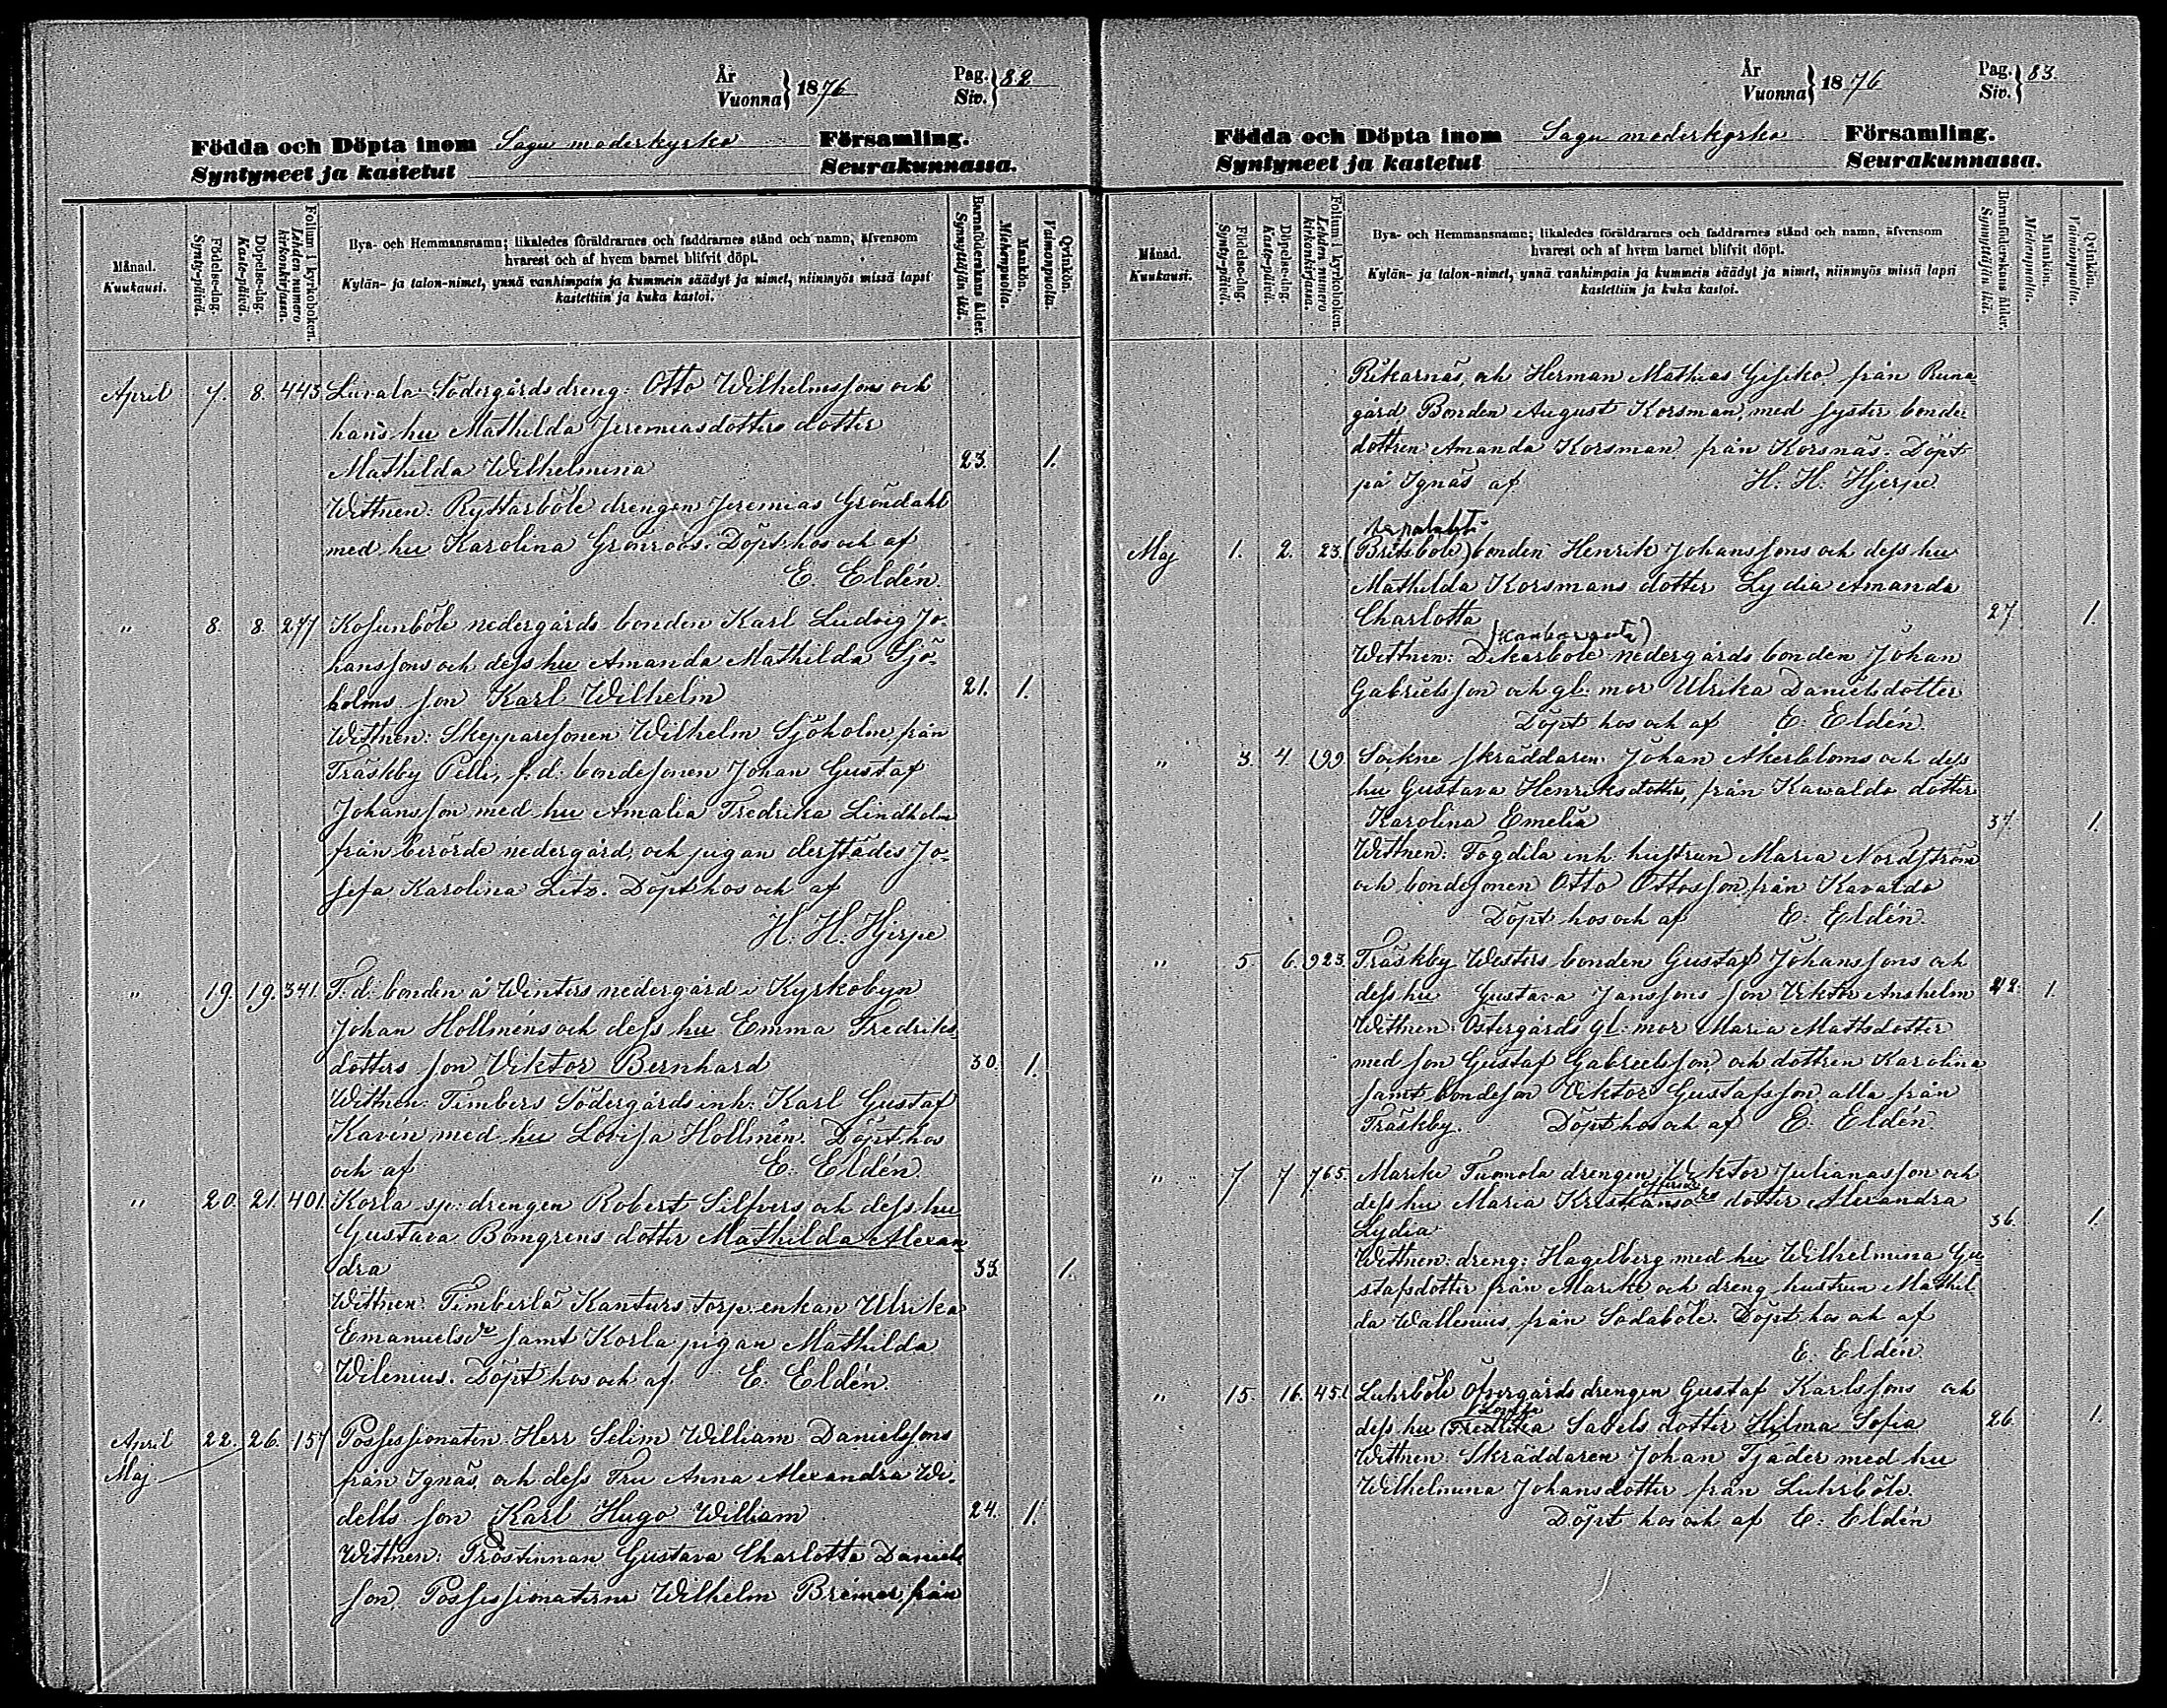 År
Vuonna } 1876
Pag.
Siv. } 82
Födda och Döpta inom Sagu moderkyrko Församling.
Syntyneet ja kastetut Seurakunnassa.
Månad.
Kuukausi.
Födelse-dag.
Synty-päivä.
Döpelse-dag.
Kaste-päivä.
Folium i kyrkoboken.
Lehden numero kirkonkirjassa.
Bya- och Hemmansnamn; likaledes föräldrarnes och faddrarnes stånd och namn, äfvensom
hvarest och af hvem barnet blifvit döpt.
Kylän- ja talon-nimet, ynnä vanhimpain ja kummein säädyt ja nimet, niinmyös missä lapsi
kastettiin ja kuka kastoi.
Barnaföderskans ålder.
Synnyttäjän ikä.
Mankön.
Miehenpuolia.
Qvinkön.
Vaimonpuolia.
April 7. 8. 443 Livala Södergårds dreng: Otto Wilhelmssons och
hans hu Mathilda Jeremiasdotters dotter
Mathilda Wilhelmina 23. 1.
Wittnen: Ryttarböle drengen Jeremias Gröndahl
med hu Karolina Grönroos. Döpt hos och af
E. Eldén.
" 8. 8. 277 Kosunböle nedergårds bonden Karl Ludvig Jo-
hanssons och dess hu Amanda Mathilda Sjö-
holms son Karl Wilhelm 21. 1.
Wittnen: Skepparesonen Wilhelm Sjöholm från
Träskby Pelli, f.d. bondesonen Johan Gustaf
Johansson med hu Amalia Fredrika Lindholm
från berörde nedergård, och pigan derstädes Jo-
sefa Karolina Litz. Döpt hos och af
H. H. Hjerpe
" 19. 19. 341. F.d. bonden å Winters nedergård i Kyrkobyn
Johan Hollméns och dess hu Emma Fredriks-
dotters son Viktor Bernhard 30. 1.
Wittnen: Timbers Södergårds inh. Karl Gustaf
Kavén med hu Lovisa Hollmén. Döpt hos
och af E. Eldén.
" 20. 21. 401. Korla sp: drengen Robert Silfvers och dess hu
Gustava Bomgrens dotter Mathilda Alexan-
dra 33. 1.
Wittnen: Timberlä Kanturs torp. enkan Ulrika
Emanuelsdr samt Korla pigan Mathilda
Wilenius. Döpt hos och af E. Eldén.
April 22. 26. 157 Possessionaten Herr Selim William Danielssons
Maj från Ignäs, och dess Fru Anna Alexandra Wi-
dells son Karl Hugo William 24. 1.
Wittnen: Prostinnan Gustava Charlotta Daniels
son, Possessionaterne Wilhelm Bremer från
År
Vuonna } 1876
Pag.
Siv. } 83.
Födda och Döpta inom Sagu moderkyrko Församling.
Syntyneet ja kastetut Seurakunnassa.
Månad.
Kuukausi.
Födelse-dag.
Synty-päivä.
Döpelse-dag.
Kaste-päivä.
Folium i kyrkoboken.
Lehden numero kirkonkirjassa.
Bya- och Hemmansnamn; likaledes föräldrarnes och faddrarnes stånd och namn, äfvensom
hvarest och af hvem barnet blifvit döpt.
Kylän- ja talon-nimet, ynnä vanhimpain ja kummein säädyt ja nimet, niinmyös missä lapsi
kastettiin ja kuka kastoi.
Barnaföderskans ålder.
Synnyttäjän ikä.
Mankön.
Miehenpuolia.
Qvinkön.
Vaimonpuolia.
Rikarnäs, och Herman Mathias från Runa-
gård, Bonden August Korsman, med syster bonde
dottren Amanda Korsman från Korsnäs. Döpt
på Ignäs af H. H. Hjerpe
Maj 1. 2. 23. (Britsböle) bonden Henrik Johanssons och dess hu
Mathilda Korsmans dotter Lydia Amanda
Charlotta 27 1.
Wittnen: Dikarböle nedergårds bonden Johan
Gabrielsson och gl. mor Ulrika Danielsdotter
Döpt hos och af E. Eldén.
" 3. 4. 199. Sockne skräddaren Johan Åkerbloms och dess
hu Gustava Henriksdotters, från Kawaldo dotter
Karolina Emelia 37. 1.
Wittnen: Togdila inh. hustrun Maria Nordström
och bondesonen Otto Ottosson från Kavaldo
Döpt hos och af E. Eldén.
" 5. 6. 923. Träskby Westers bonden Gustaf Johanssons och
dess hu Gustava Janssons son Viktor Anshelm 42. 1.
Wittnen: Östergårds gl. mor Maria Mattsdotter
med son Gustaf Gabrielsson och dottren Karolina
samt bondeson Viktor Gustafsson alla från
Träskby. Döpt hos och af E. Eldén.
" 7 7 765. Marike Tuomola drengen Viktor Julianasson och
dess hu Maria dotter Alexandra
Lydia 36. 1.
Wittnen: dreng: Hagelberg med hu Wilhelmina Gu-
stafsdotter från Marike och dreng hustrun Mathil-
da Wallenius, från Sodaböle. Döpt hos och af
E. Eldén
" 15. 16. 451. Luhrböle Öfvergårds drengen Gustaf Karlssons och
dess hu (Fredrika Sabels dotter Hilma Sofia 26. 1.
Wittnen: Skräddaren Johan Tjäder med hu
Wilhelmina Johansdotter från Luhrböle.
Döpt hos och af E. Eldén